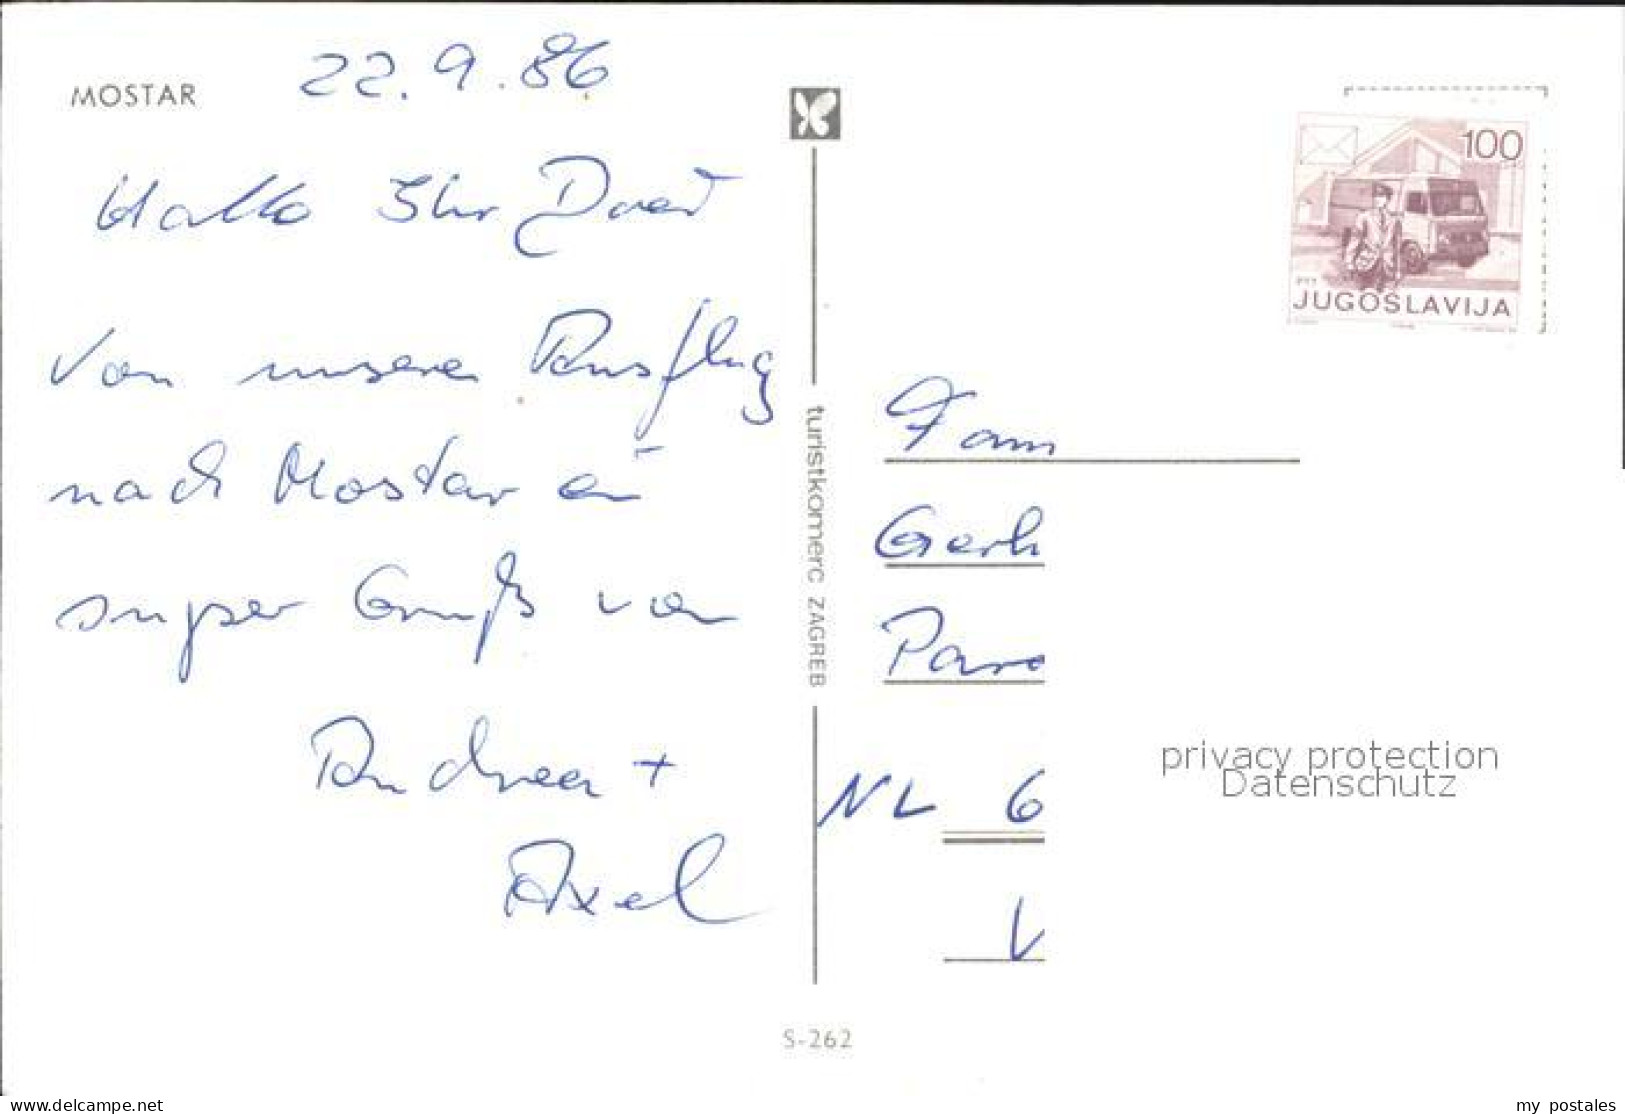 MOSTAR
22.9.86
Hallo Ihr Drei
Von unseren Ausflug
nach Mostar ein
super Gruß von
Andrea +
Axel
turistkomerc ZAGREB
S-262
100
JUGOSLAVIJA
Fam
Gerh
Par
NL 6
V
privacy protection
Datenschutz
www.delcampe.net
my_postales